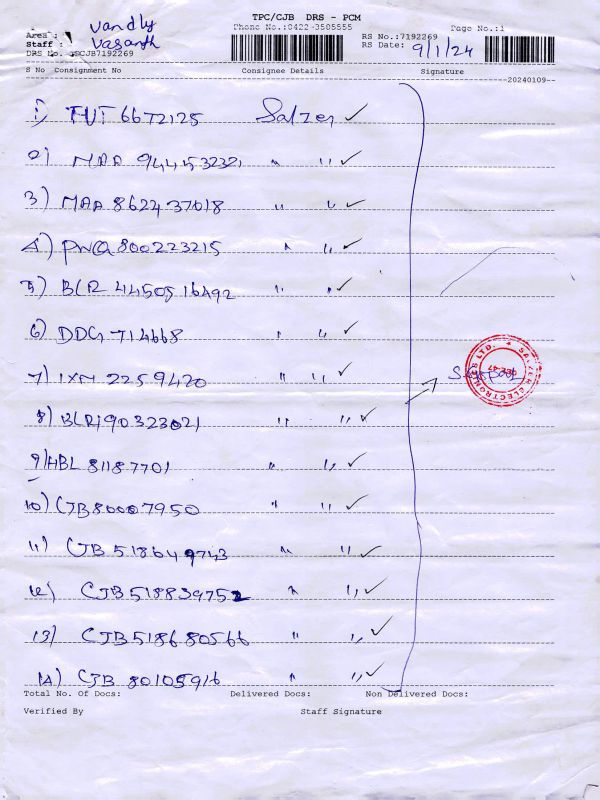 TPC/CJB DRS - PCM
Phone No.:0422-3505555 Page No.:1
Area : Vandly
Staff : Vasanth
RS No.:7192269
RS Date: 9/1/24
DRS No. :PCJB7192269
S No Consignment No Consignee Details Signature
20240109
1) TUT 66772125 Salzer ✓
2) MAA 944532321 " " ✓
3) MAA 862437018 " " ✓
4) PNQ 800223215 " " ✓
5) BLR 4450516492 " " ✓
6) DDG 714668 " " ✓
7) IXM 2259420 " " ✓
SALZER ELECTRONICS LTD.
8) BLR 190323021 " " ✓
9) HBL 81187701 " " ✓
10) CJB 80007950 " " ✓
11) CJB 518649743 " " ✓
12) CJB 518839752 " " ✓
13) CJB 518680566 " " ✓
14) CJB 80105916 " " ✓
Total No. Of Docs: Delivered Docs: Non Delivered Docs:
Verified By Staff Signature